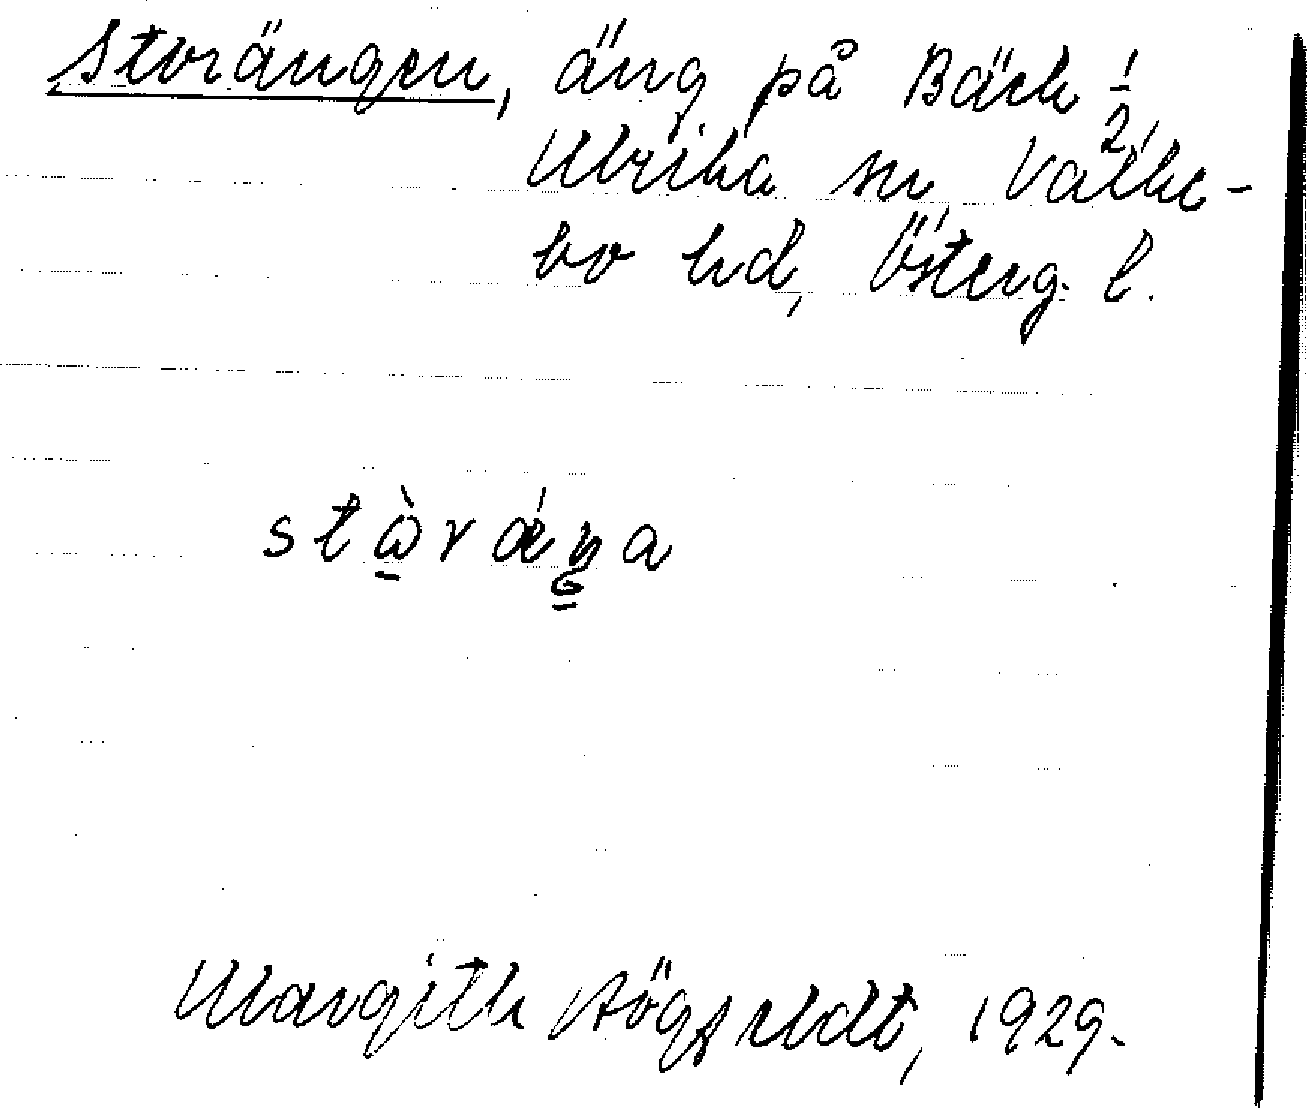 Storängen, äng på Bäck 1/2,
Ulrika sn, Valke-
bo hd, Österg. l.
stὼ̲rǽŋ̲a
Margith Högfeldt, 1929.